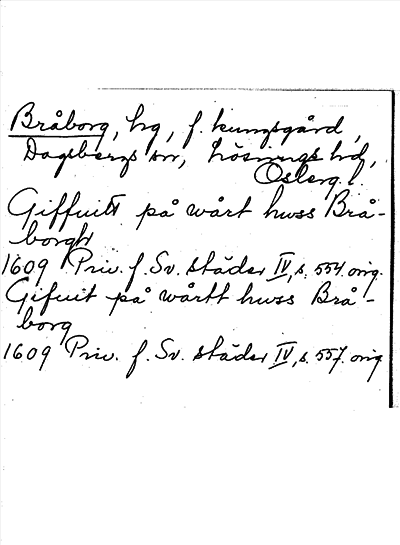 Bråborg, hg, f. kungsgård,
Dagsbergs sn, Lösings hd,
Österg. l.
Giffuitt på wårt huss Brå-
borgh
1609 Priv. f. Sv. städer IV, s. 554. orig.
Gifuit på wårtt huss Brå-
borg
1609 Priv. f. Sv. städer IV, s. 557. orig